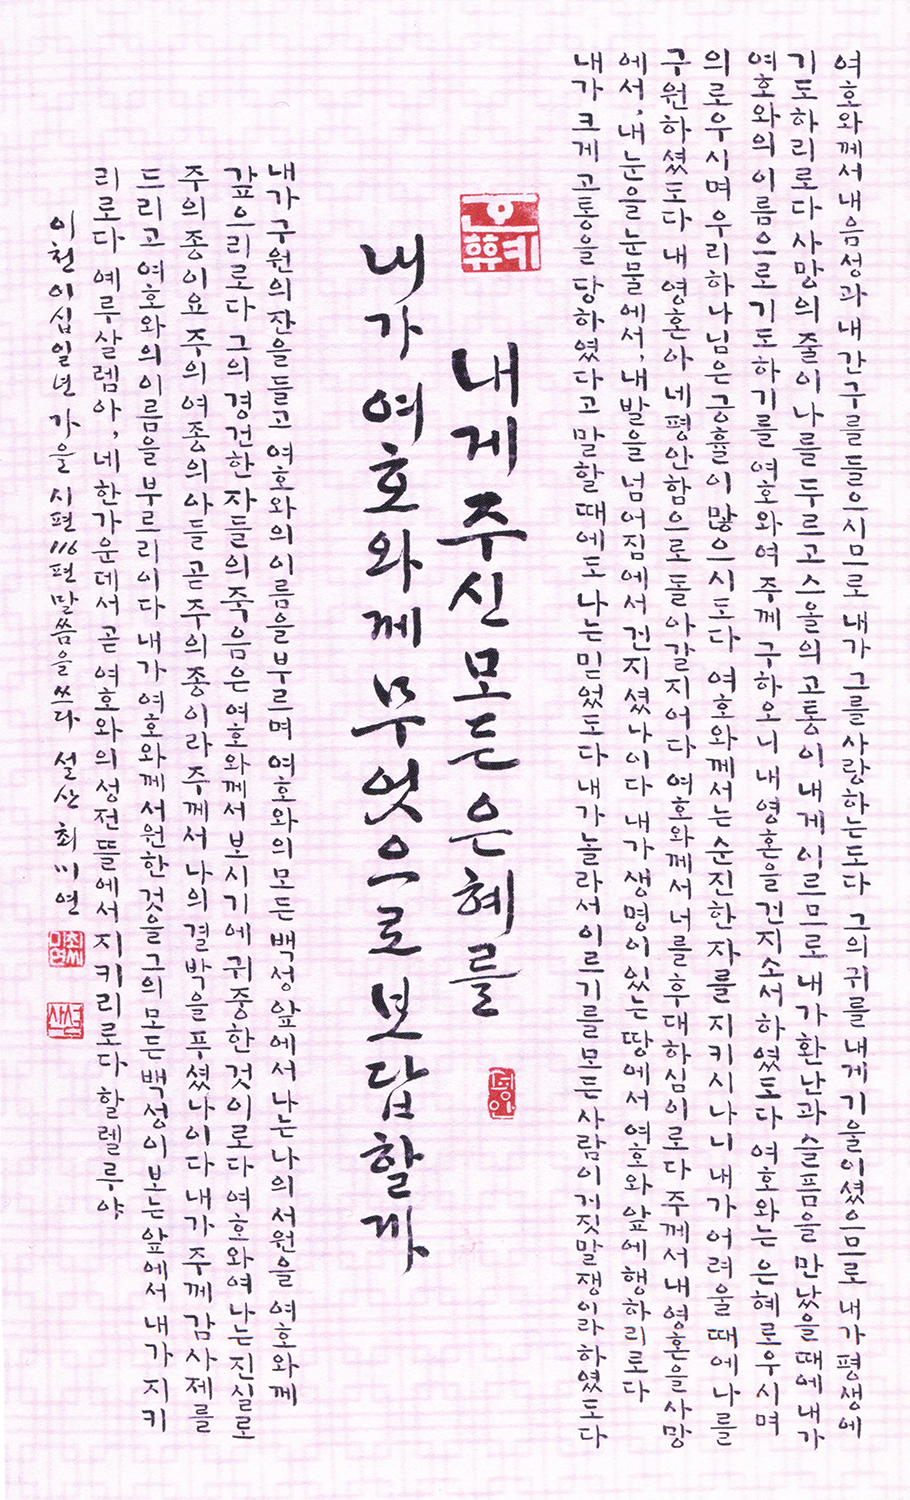 여호와께서 내 음성과 내 간구를 들으시므로 내가 그를 사랑하는도다 그의 귀를 내게 기울이셨으므로 내가 평생에
기도하리로다 사망의 줄이 나를 두르고 스올의 고통이 내게 이르므로 내가 환난과 슬픔을 만났을 때에 내가
여호와의 이름으로 기도하기를 여호와여 주께 구하오니 내 영혼을 건지소서 하였도다 여호와는 은혜로우시며
의로우시며 우리 하나님은 긍휼이 많으시도다 여호와께서는 순진한 자를 지키시나니 내가 어려울 때에 나를
구원하셨도다 내 영혼아 네 평안함으로 돌아갈지어다 여호와께서 너를 후대하심이로다 주께서 내 영혼을 사망
에서, 내 눈을 눈물에서, 내 발을 넘어짐에서 건지셨나이다 내가 생명이 있는 땅에서 여호와 앞에 행하리로다
내가 크게 고통을 당하였다고 말할 때에도 나는 믿었도다 내가 놀라서 이르기를 모든 사람이 거짓말쟁이라 하였도다
내게 주신 모든 은혜를
내가 여호와께 무엇으로 보답할까
내가 구원의 잔을 들고 여호와의 이름을 부르며 여호와의 모든 백성 앞에서 나는 나의 서원을 여호와께
갚으리로다 그의 경건한 자들의 죽음은 여호와께서 보시기에 귀중한 것이로다 여호와여 나는 진실로
주의 종이요 주의 여종의 아들 곧 주의 종이라 주께서 나의 결박을 푸셨나이다 내가 주께 감사제를
드리고 여호와의 이름을 부르리이다 내가 여호와께 서원한 것을 그의 모든 백성이 보는 앞에서 내가 지키
리로다 예루살렘아, 네 한가운데서 곧 여호와의 성전 뜰에서 지키리로다 할렐루야
이천이십일년 가을 시편 116편 말씀을 쓰다 설산 최미연
최씨미연
설산